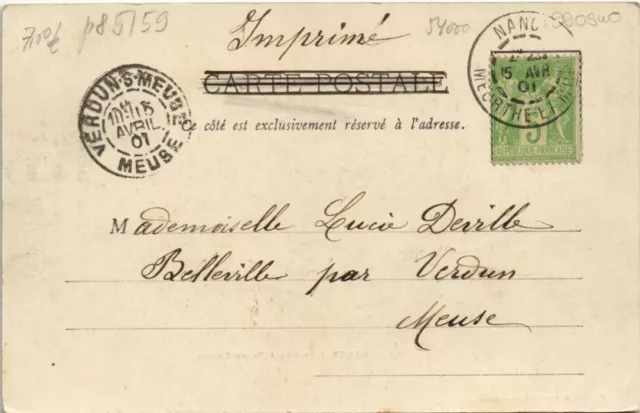 p85159
54000
Imprimé
CARTE POSTALE
Ce côté est exclusivement réservé à l'adresse.
VERDUN-S-MEUSE
AVRIL
01
MEUSE
NANCY
15 AVR
01
MEURTHE-ET-M
5
REPUBLIQUE FRANÇAISE
Mademoiselle Lucie Deville
Belleville par Verdun
Meuse